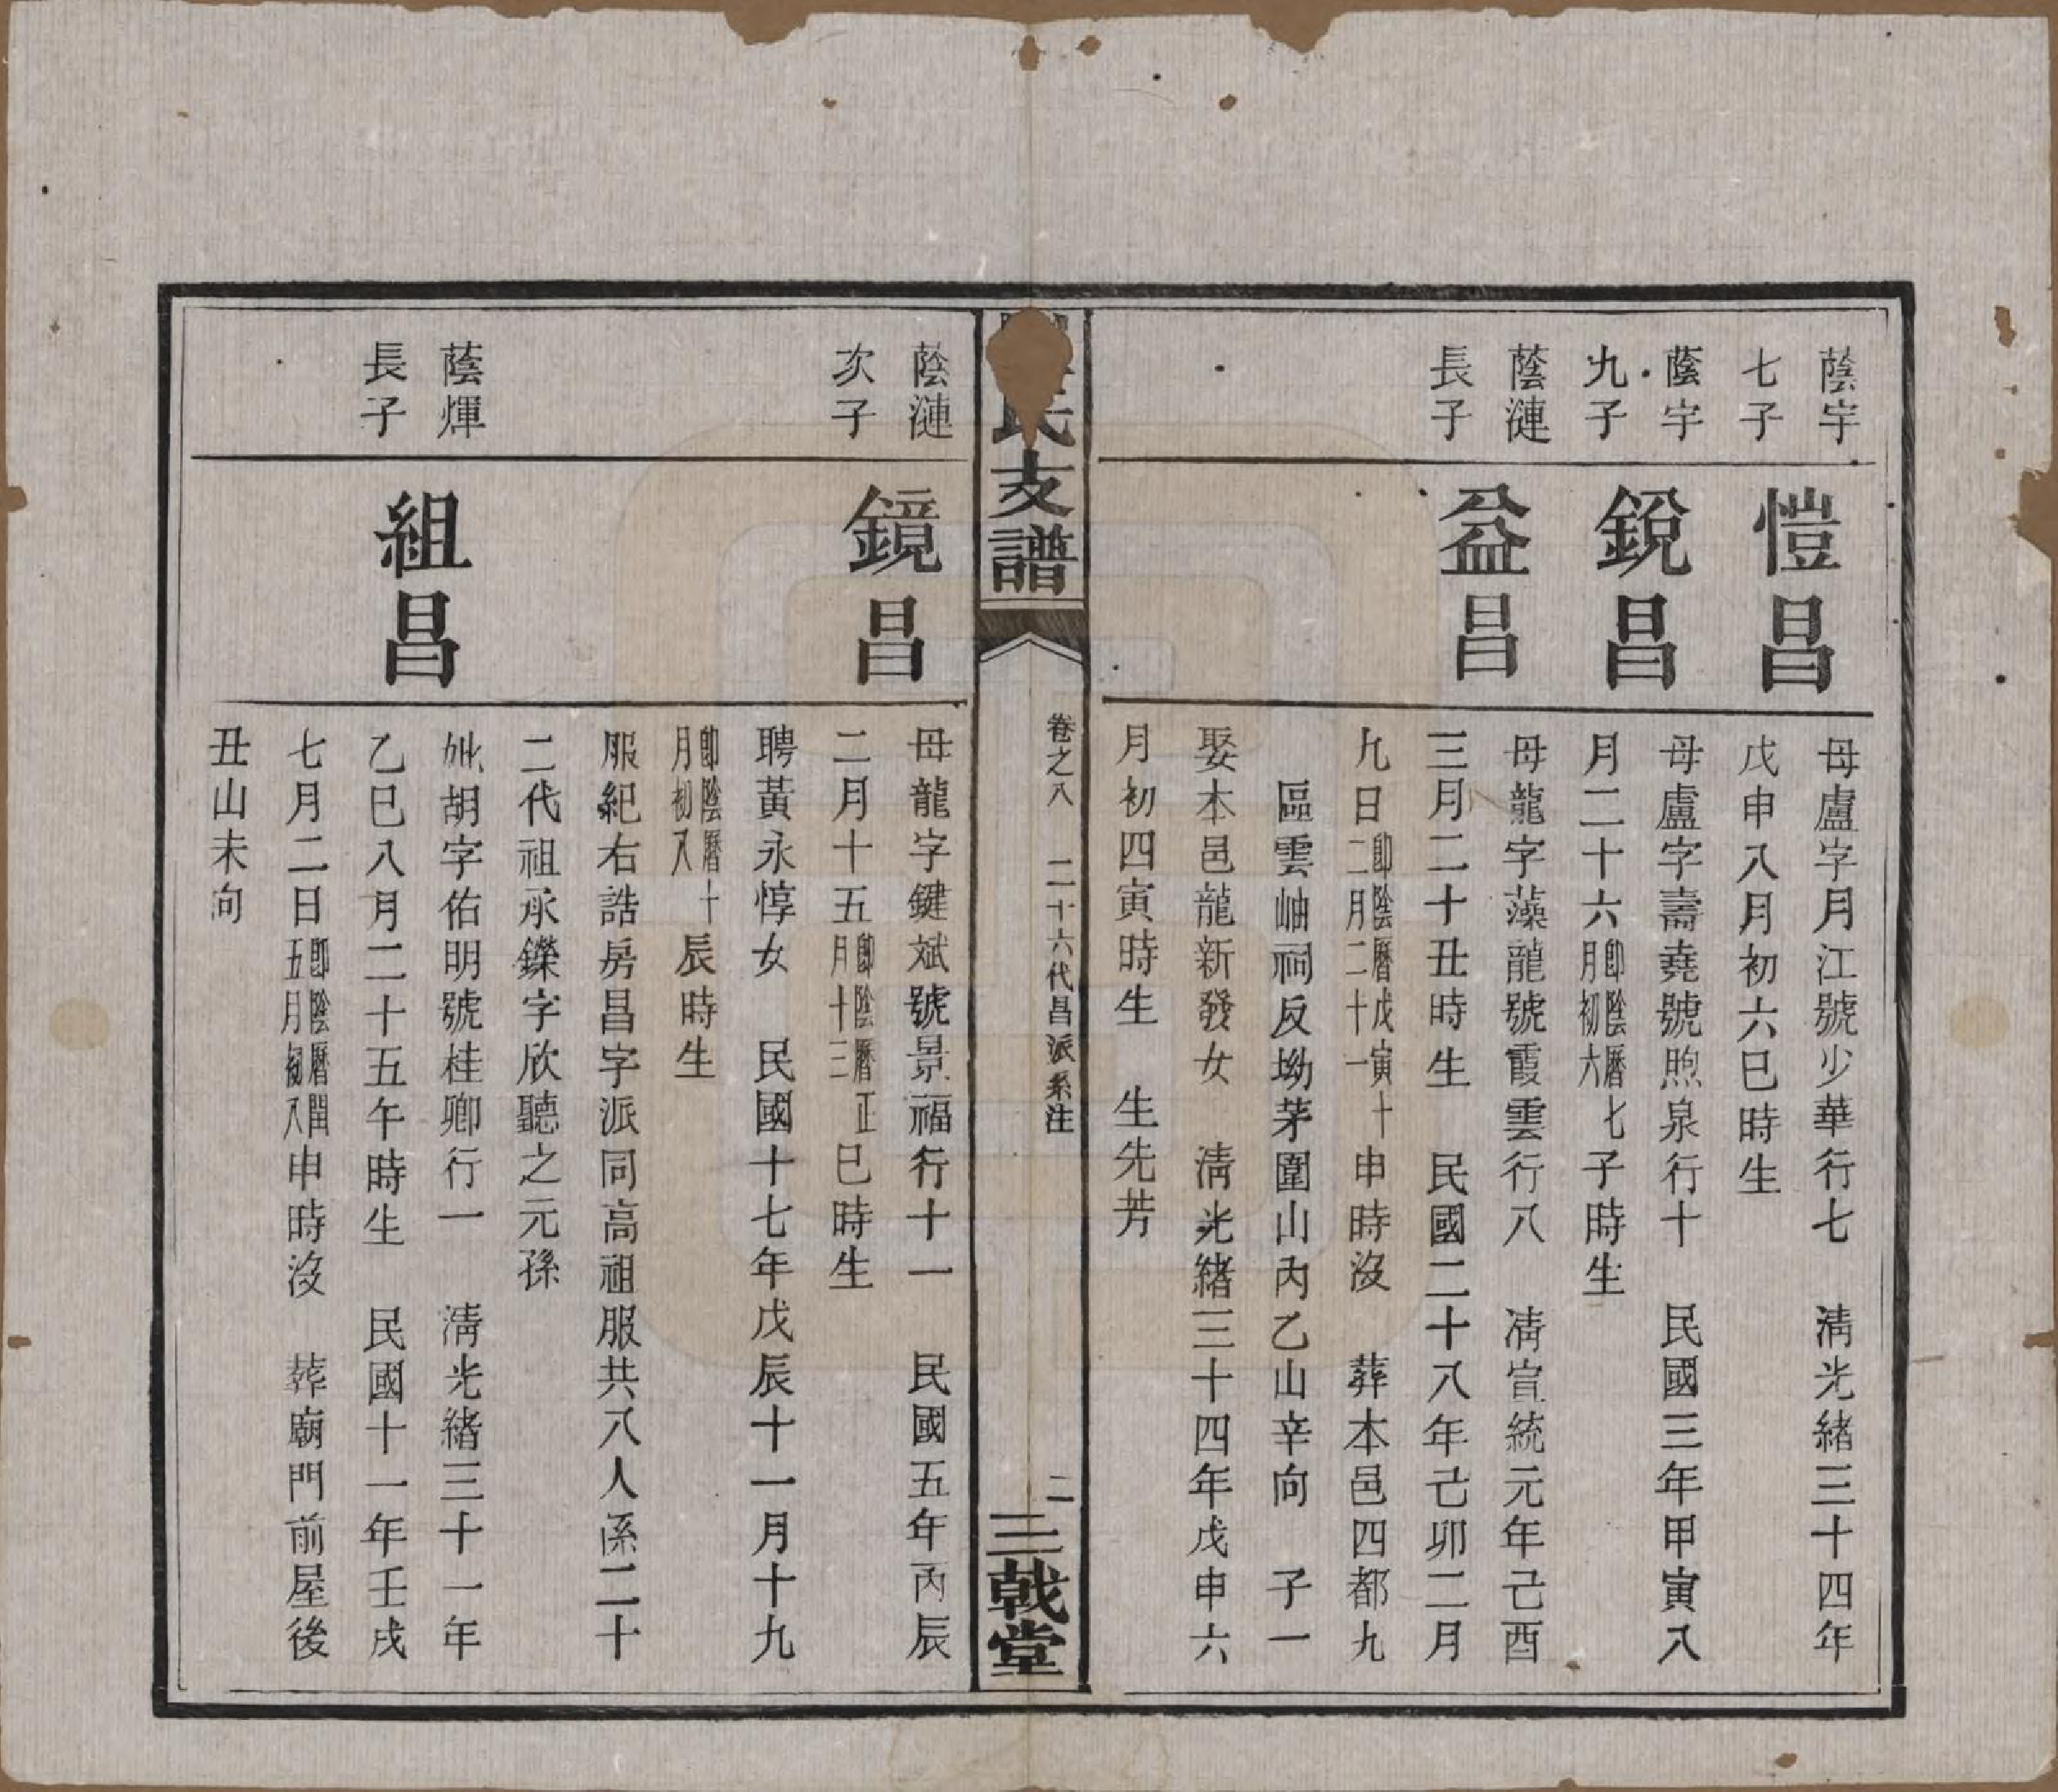 蔭宇
七子
愷昌
母盧字月江號少華行七　清光緒三十四年
戊申八月初六巳時生
蔭宇
九子
銳昌
母盧字壽堯號煦泉行十　民國三年甲寅八
月二十六即陰曆七月初六子時生
蔭漣
長子
益昌
母龍字藻龍號霞雲行八　清宣統元年己酉
三月二十丑時生　民國二十八年己卯二月
九日即陰曆戊寅十二月二十一申時沒　葬本邑四都九
區雲岫祠反坳茅圍山內乙山辛向　子一
娶本邑龍新發女　清光緒三十四年戊申六
月初四寅時生　生先芳
氏支譜
卷之八　二十六代昌派系注
二
三戟堂
蔭漣
次子
鏡昌
母龍字鍵斌號景福行十一　民國五年丙辰
二月十五即陰曆正月十三巳時生
聘黃永惇女　民國十七年戊辰十一月十九
即陰曆十月初八辰時生
服紀右誥房昌字派同高祖服共八人係二十
二代祖承鑠字欣聽之元孫
蔭煇
長子
組昌
妣胡字佑明號桂卿行一　清光緒三十一年
乙巳八月二十五午時生　民國十一年壬戌
七月二日即陰曆閏五月初八申時沒　葬廟門前屋後
丑山未向